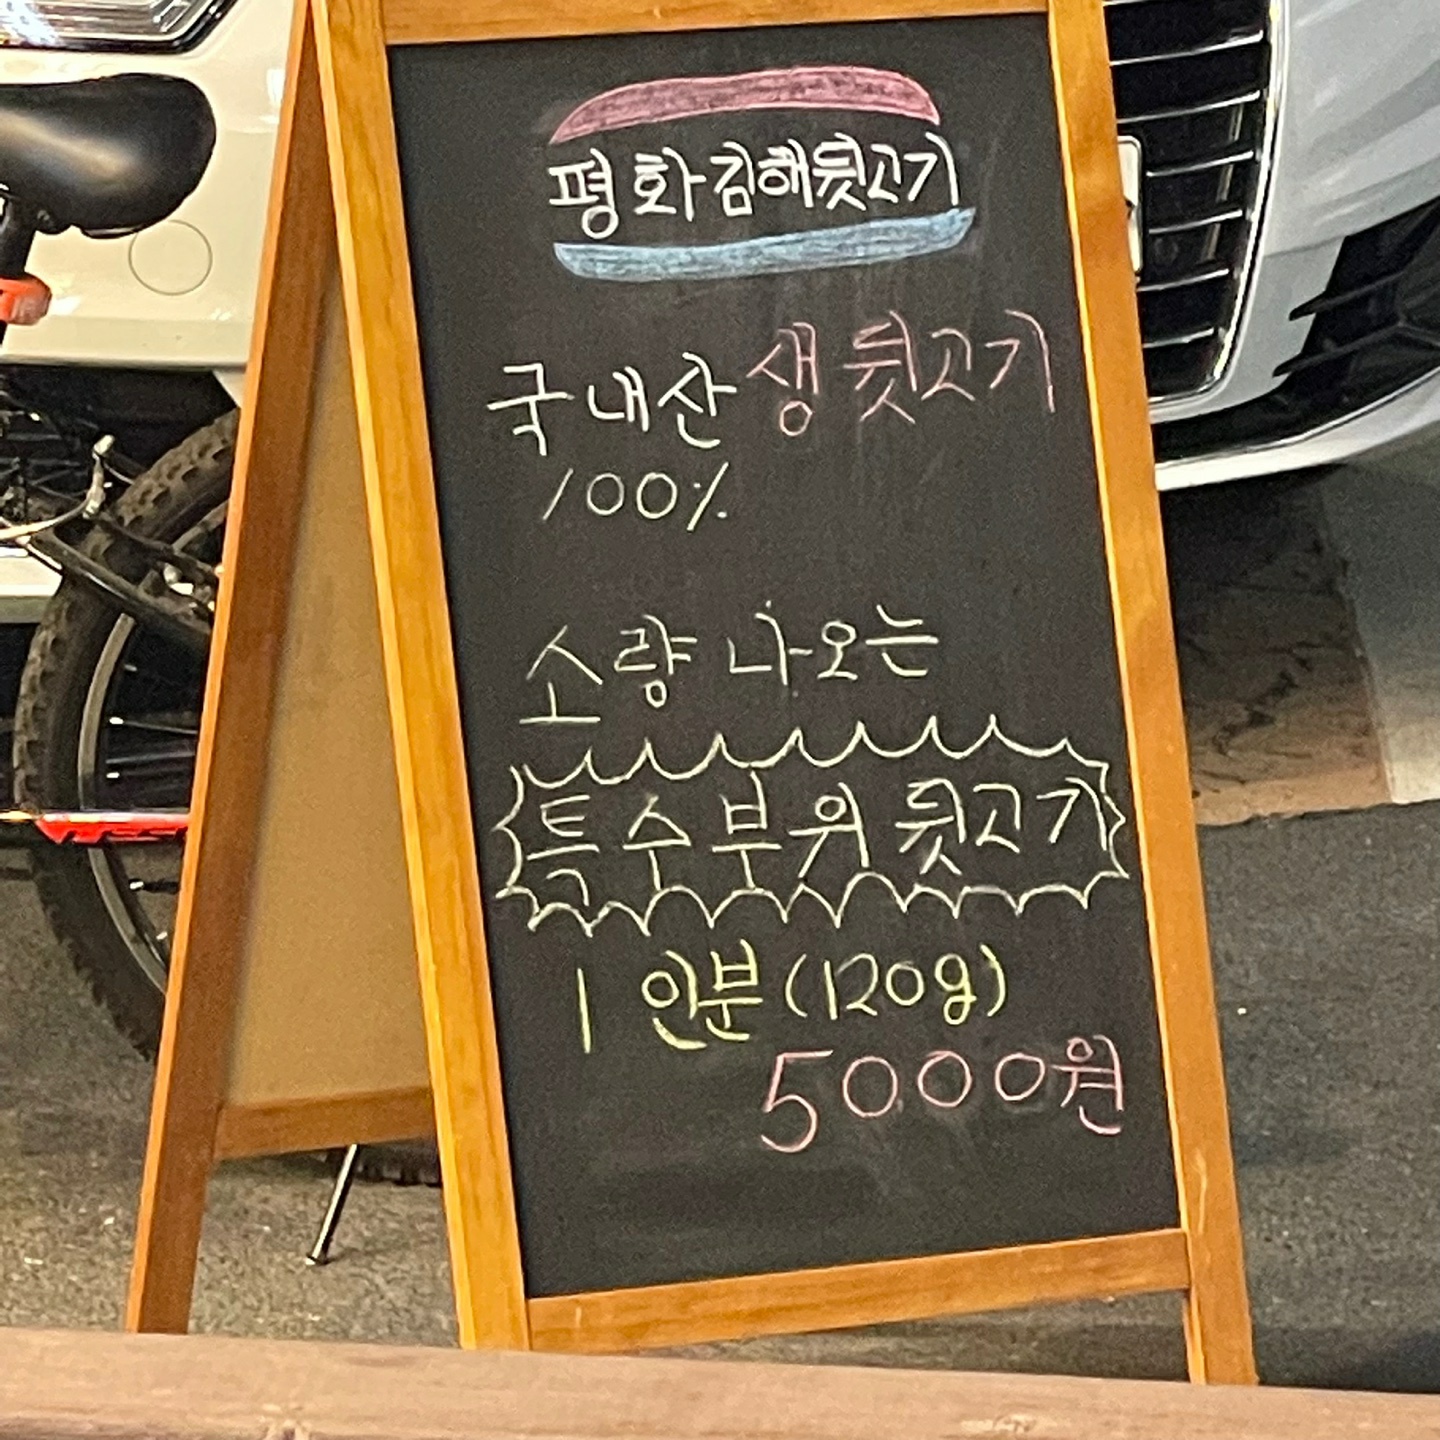 평화김해뒷고기
국내산 생뒷고기
100%
소량 나오는
특수부위 뒷고기
1인분(120g)
5000원